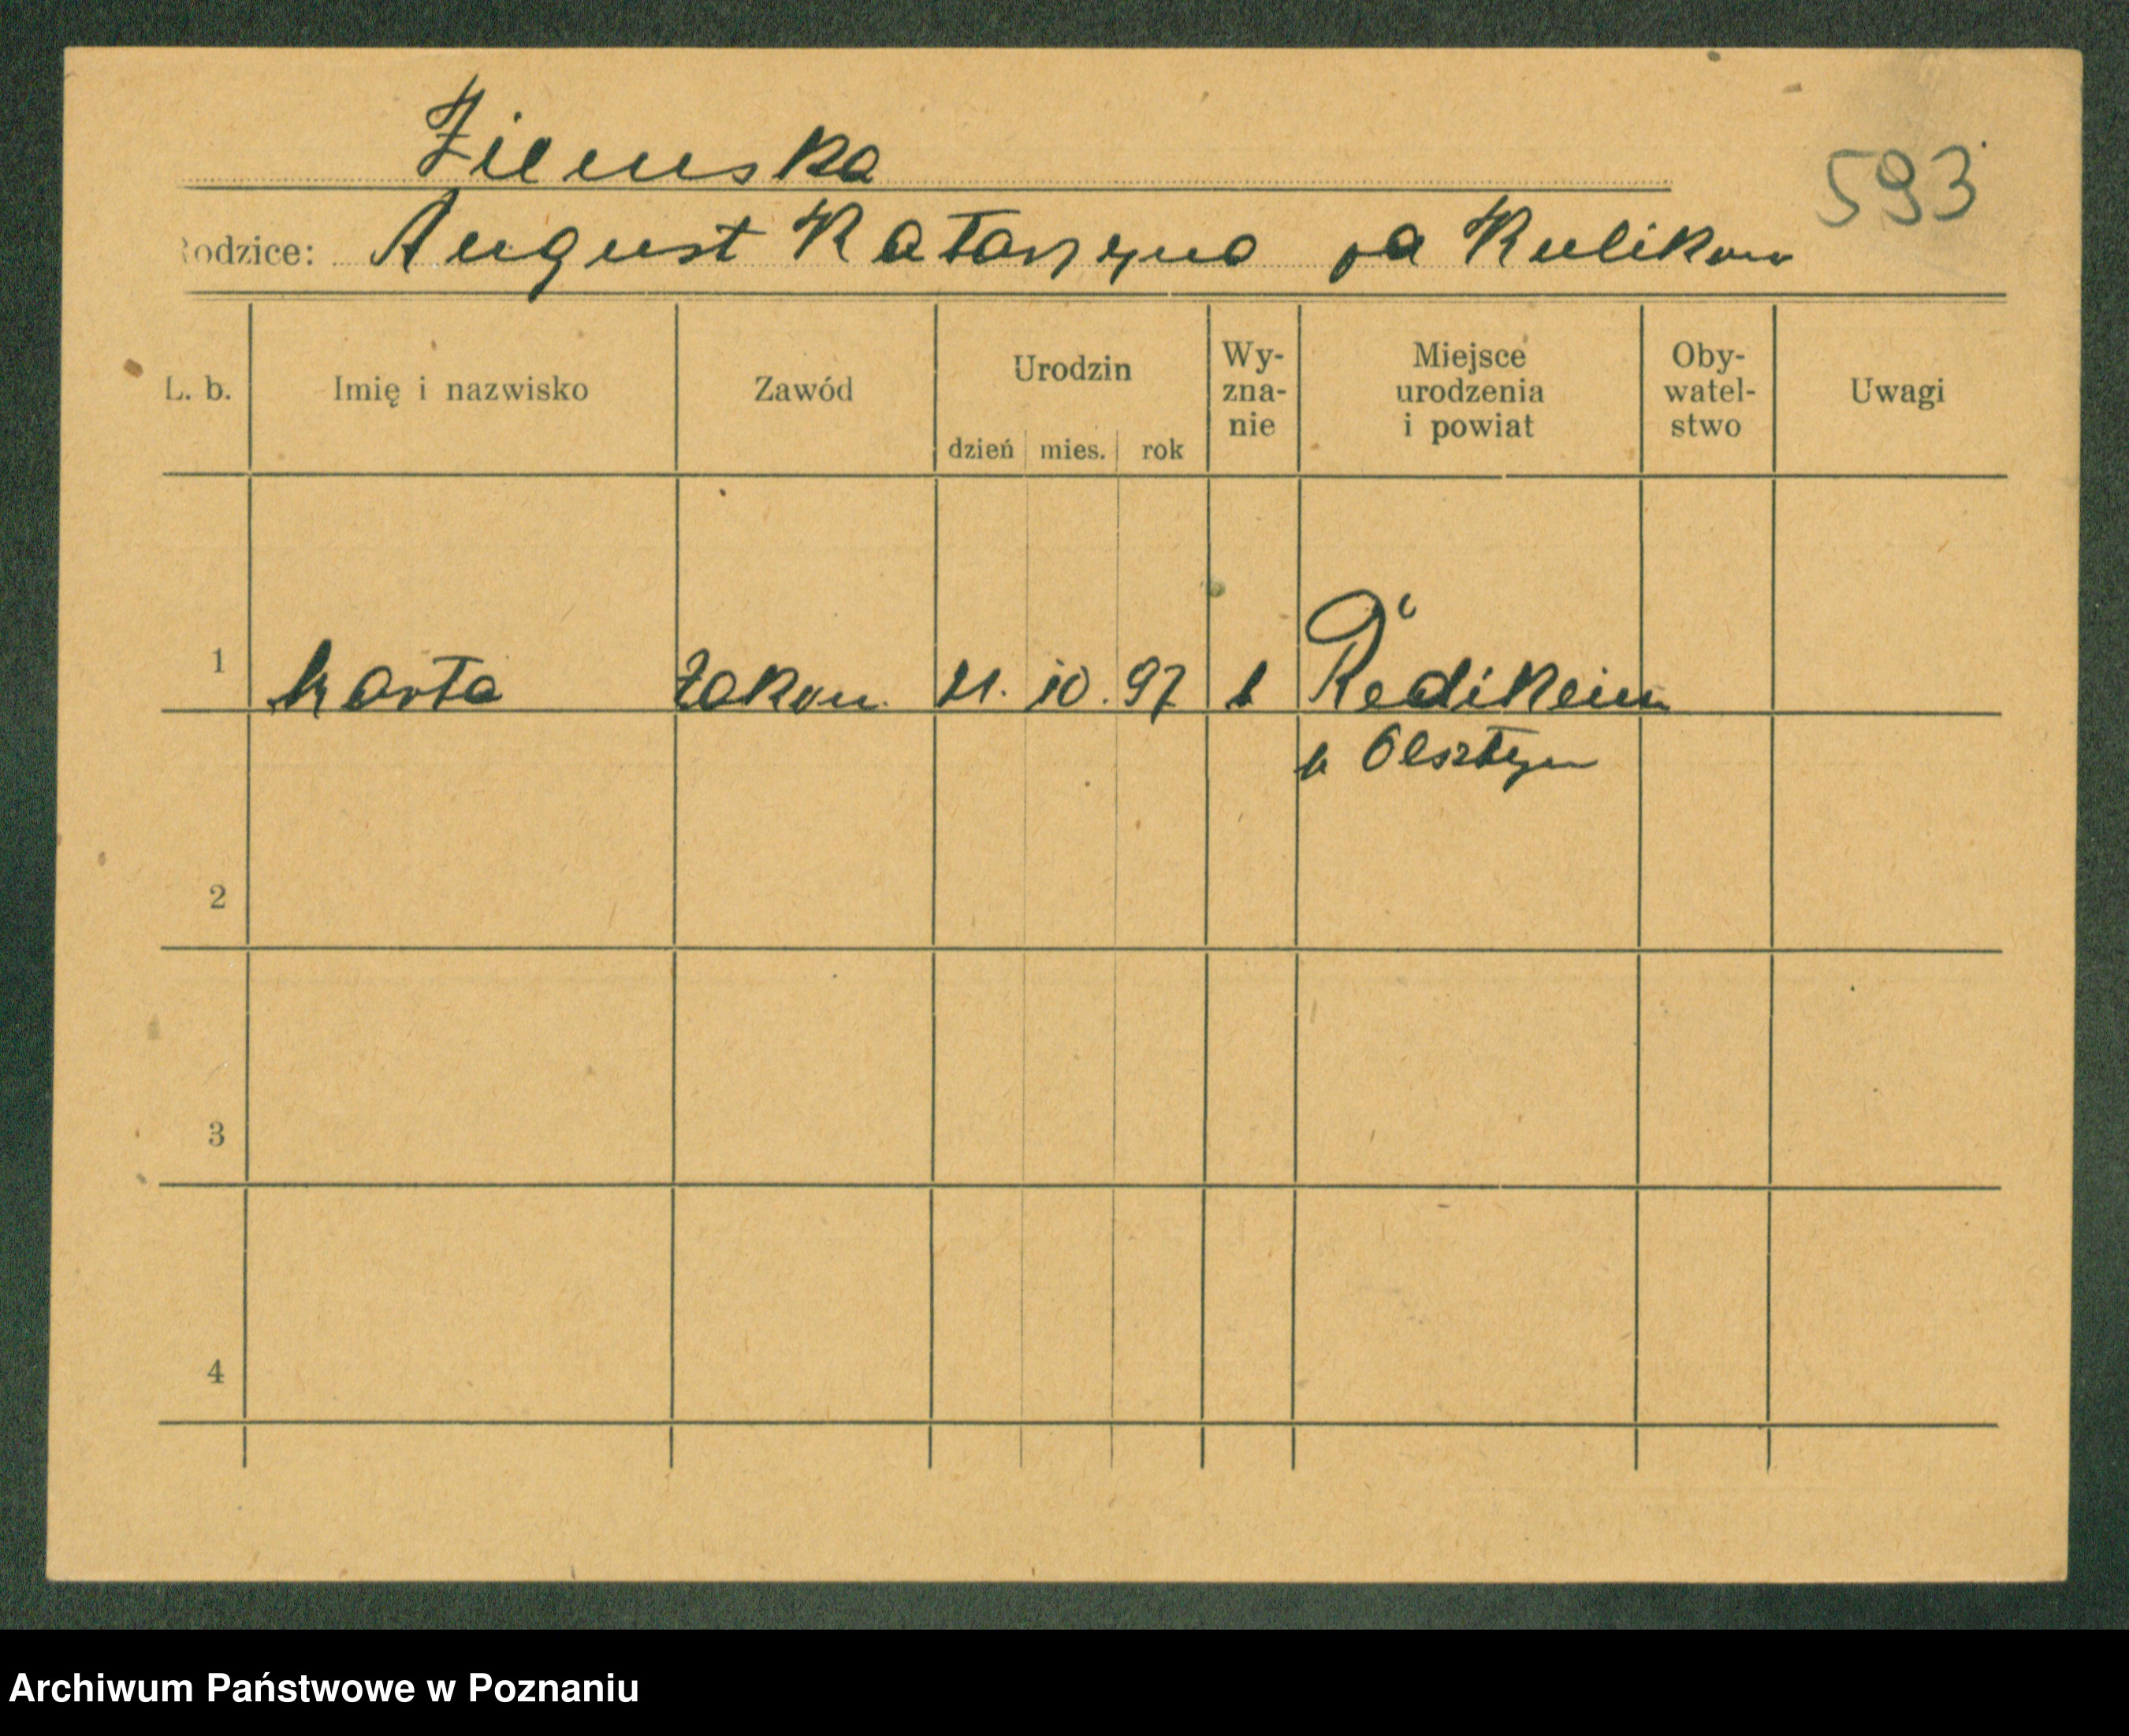 Ziemska
593
Rodzice: August Katarzyna pa Kulikow
L. b. Imię i nazwisko Zawód Urodzin dzień mies. rok Wy-zna-nie Miejsce urodzenia i powiat Oby-watel-stwo Uwagi
1 Marta Zakon. 21. 10. 97 Redikein
Olsztyn
2
3
4
Archiwum Państwowe w Poznaniu